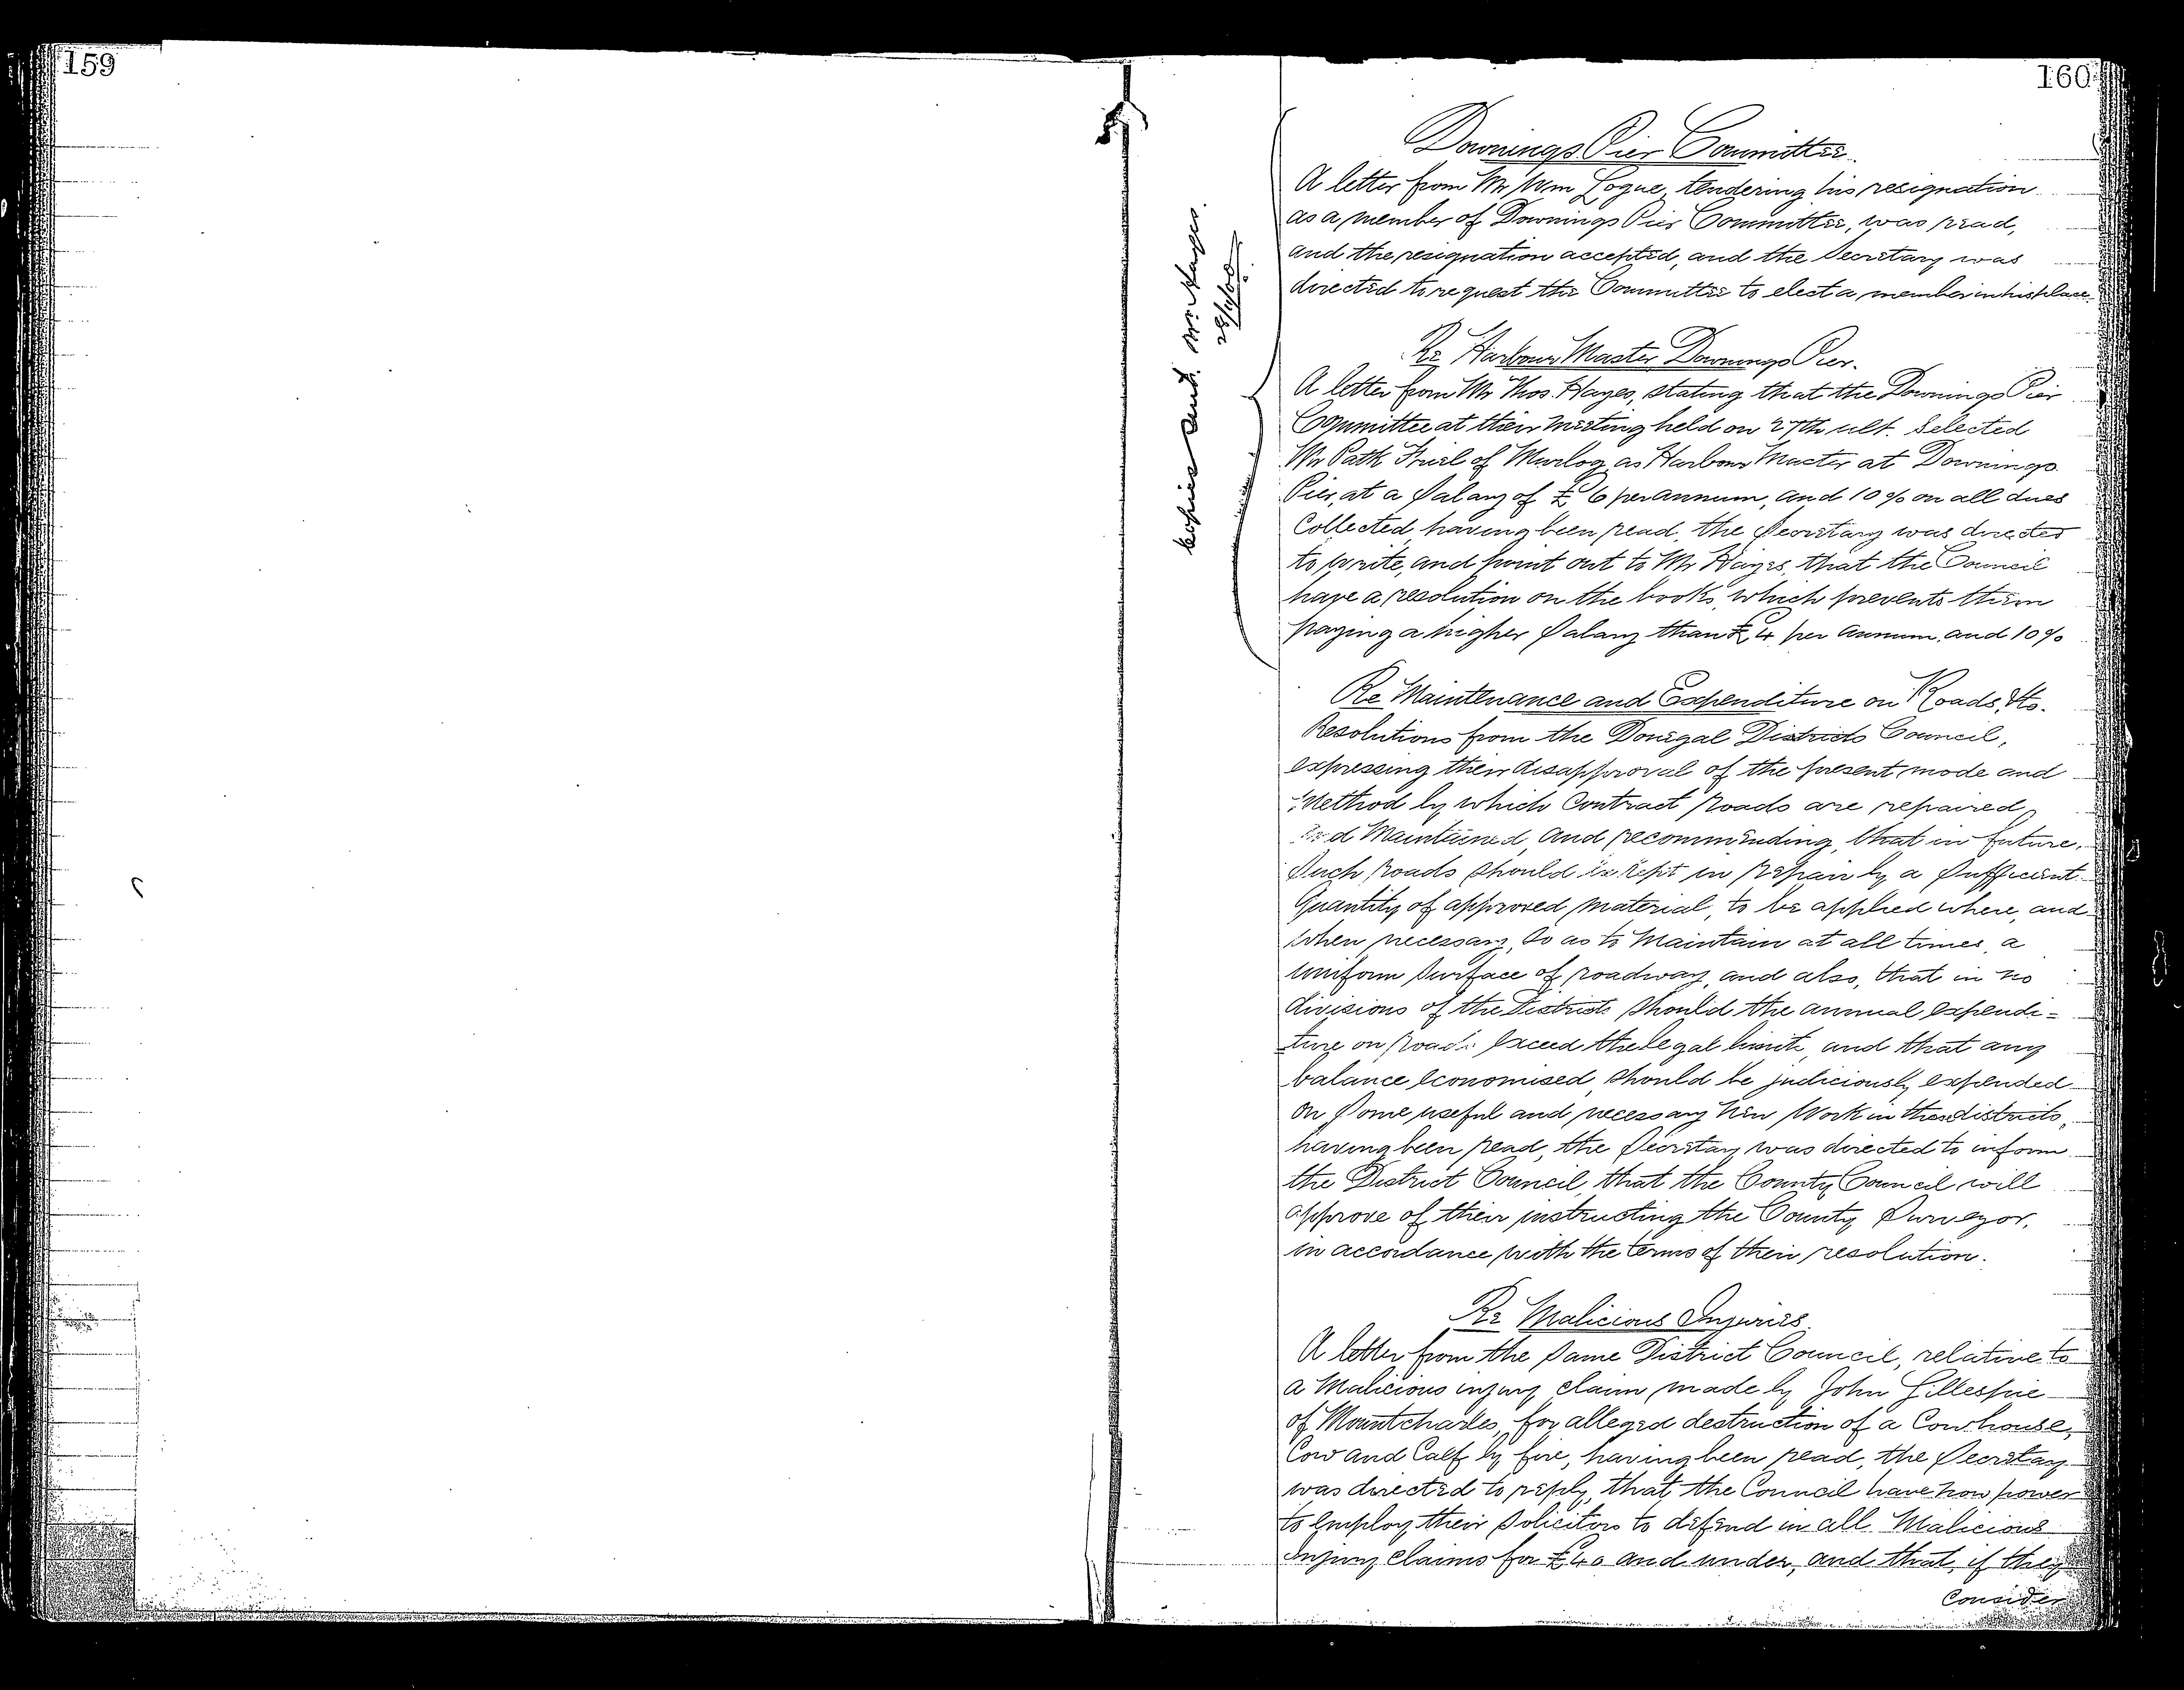 159
160
Downings Pier Committee.
A letter from Mr Wm Logue, tendering his resignation
as a member of Downings Pier Committee, was read,
and the resignation accepted, and the Secretary was
directed to request the Committee to elect a member in his place.
Copies sent. Mr. Hayes.
Re Harbour Master Downings Pier.
A letter from Mr Thos. Hayes, stating that the Downings Pier
Committee at their meeting held on 27th ult. Selected
Mr Patk Friel of Murlog as Harbour Master at Downings
Pier, at a Salary of £6 per annum, and 10% on all dues
Collected, having been read, the Secretary was directed
to write, and point out to Mr Hayes, that the Council
have a resolution on the books, which prevents them
paying a higher Salary than £4 per Annum, and 10%
Re Maintenance and Expenditure on Roads, &c.
Resolutions from the Donegal Districts Council,
expressing their disapproval of the present mode and
Method by which Contract Roads are repaired,
and Maintained, and recommending, that in future,
Such Roads should be kept in repair by a Sufficient
Quantity of approved material, to be applied where, and
when necessary, so as to Maintain at all times, a
uniform Surface of roadway, and also, that in no
divisions of the Districts should the annual expendi=
ture on Roads exceed the legal limit, and that any
balance economised, should be judiciously expended
on Some useful and necessary New Work in the districts,
having been read, the Secretary was directed to inform
the District Council, that the County Council will
approve of their instructing the County Surveyor,
in accordance with the terms of their resolution.
Re Malicious Injuries.
A letter from the Same District Council, relative to
a Malicious injury claim made by John Gillespie
of Mountcharles, for alleged destruction of a Cowhouse,
Cow and Calf by fire, having been read, the Secretary
was directed to reply, that the Council have now power
to Employ their Solicitors to defend in all Malicious
Injury Claims for £40 and under, and that, if they
Consider